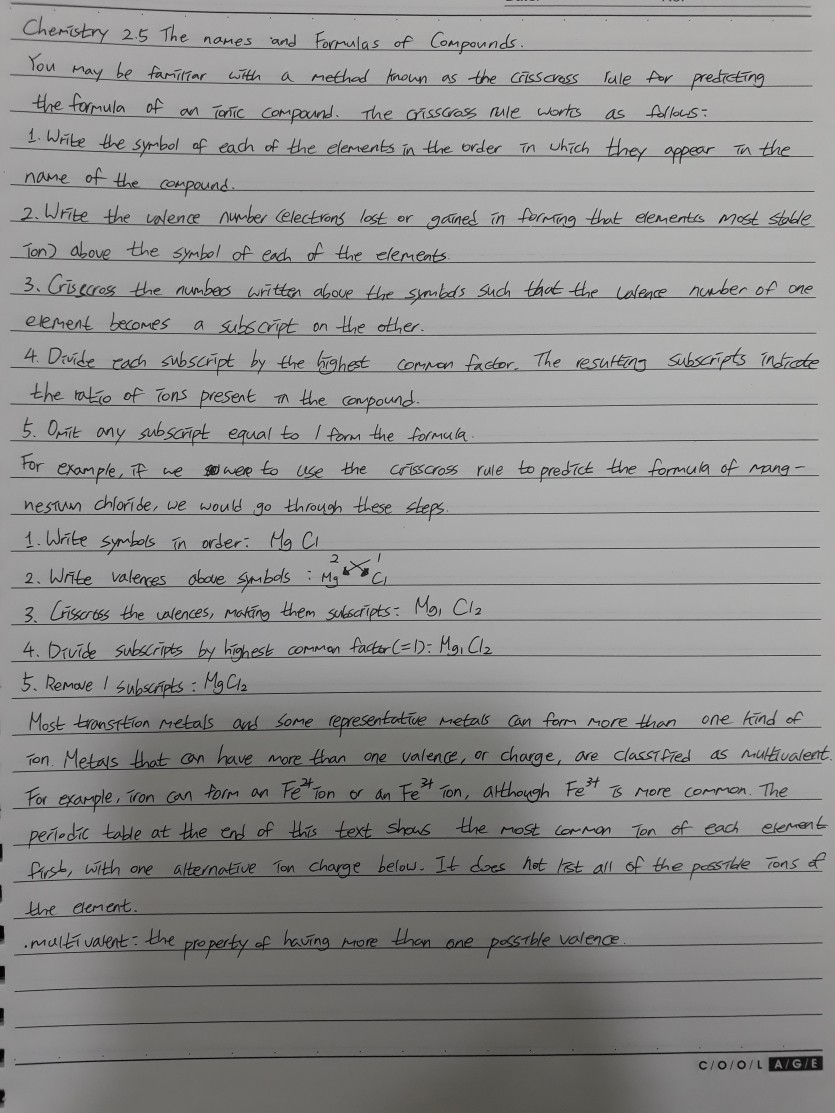 Chemistry 2.5 The names and Formulas of Compounds.
You may be familiar with a method known as the crisscross rule for predicting
the formula of an ionic compound. The crisscross rule works as follows:
1. Write the symbol of each of the elements in the order in which they appear in the
name of the compound.
2. Write the valence number (electrons lost or gained in forming that elements most stable
ion) above the symbol of each of the elements.
3. Crisscross the numbers written above the symbols such that the valence number of one
element becomes a subscript on the other.
4. Divide each subscript by the highest common factor. The resulting subscripts indicate
the ratio of ions present in the compound.
5. Omit any subscript equal to 1 form the formula.
For example, if we were to use the crisscross rule to predict the formula of mang-
nesium chloride, we would go through these steps.
1. Write symbols in order: Mg Cl
2 1
2. Write valences above symbols : Mg Cl
3. Crisscross the valences, making them subscripts: Mg₁ Cl₂
4. Divide subscripts by highest common factor (=1): Mg₁ Cl₂
5. Remove 1 subscripts: MgCl₂
Most transition metals and some representative metals can form more than one kind of
ion. Metals that can have more than one valence, or charge, are classified as multivalent.
For example, iron can form an Fe²⁺ ion or an Fe³⁺ ion, although Fe³⁺ is more common. The
periodic table at the end of this text shows the most common ion of each element
first, with one alternative ion charge below. It does not list all of the possible ions of
the element.
.multivalent: the property of having more than one possible valence.
C/O/O/L A/G/E